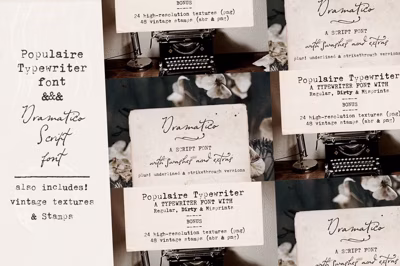 Populaire
Typewriter
font
&&&
Dramatico
Script
font
also includes!
vintage textures
& Stamps
BONUS
24 high-resolution textures (png)
48 vintage stamps (abr & png)
Dramatico
A SCRIPT FONT
with swashes and extras
plus! underlined & strikethrough versions
Populaire Typewriter
A TYPEWRITER FONT WITH
Regular, Dirty & Misprints
BONUS
24 high-resolution textures (png)
48 vintage stamps (abr & png)
Dramatico
A SCRIPT FONT
with swashes and extras
plus! underlined & strikethrough versions
Populaire Typewriter
A TYPEWRITER FONT WITH
Regular, Dirty & Misprints
BONUS
24 high-resolution textures (png)
48 vintage stamps (abr & png)
Dramatico
A SCRIPT FONT
with swashes and extras
plus! underlined & strikethrough versions